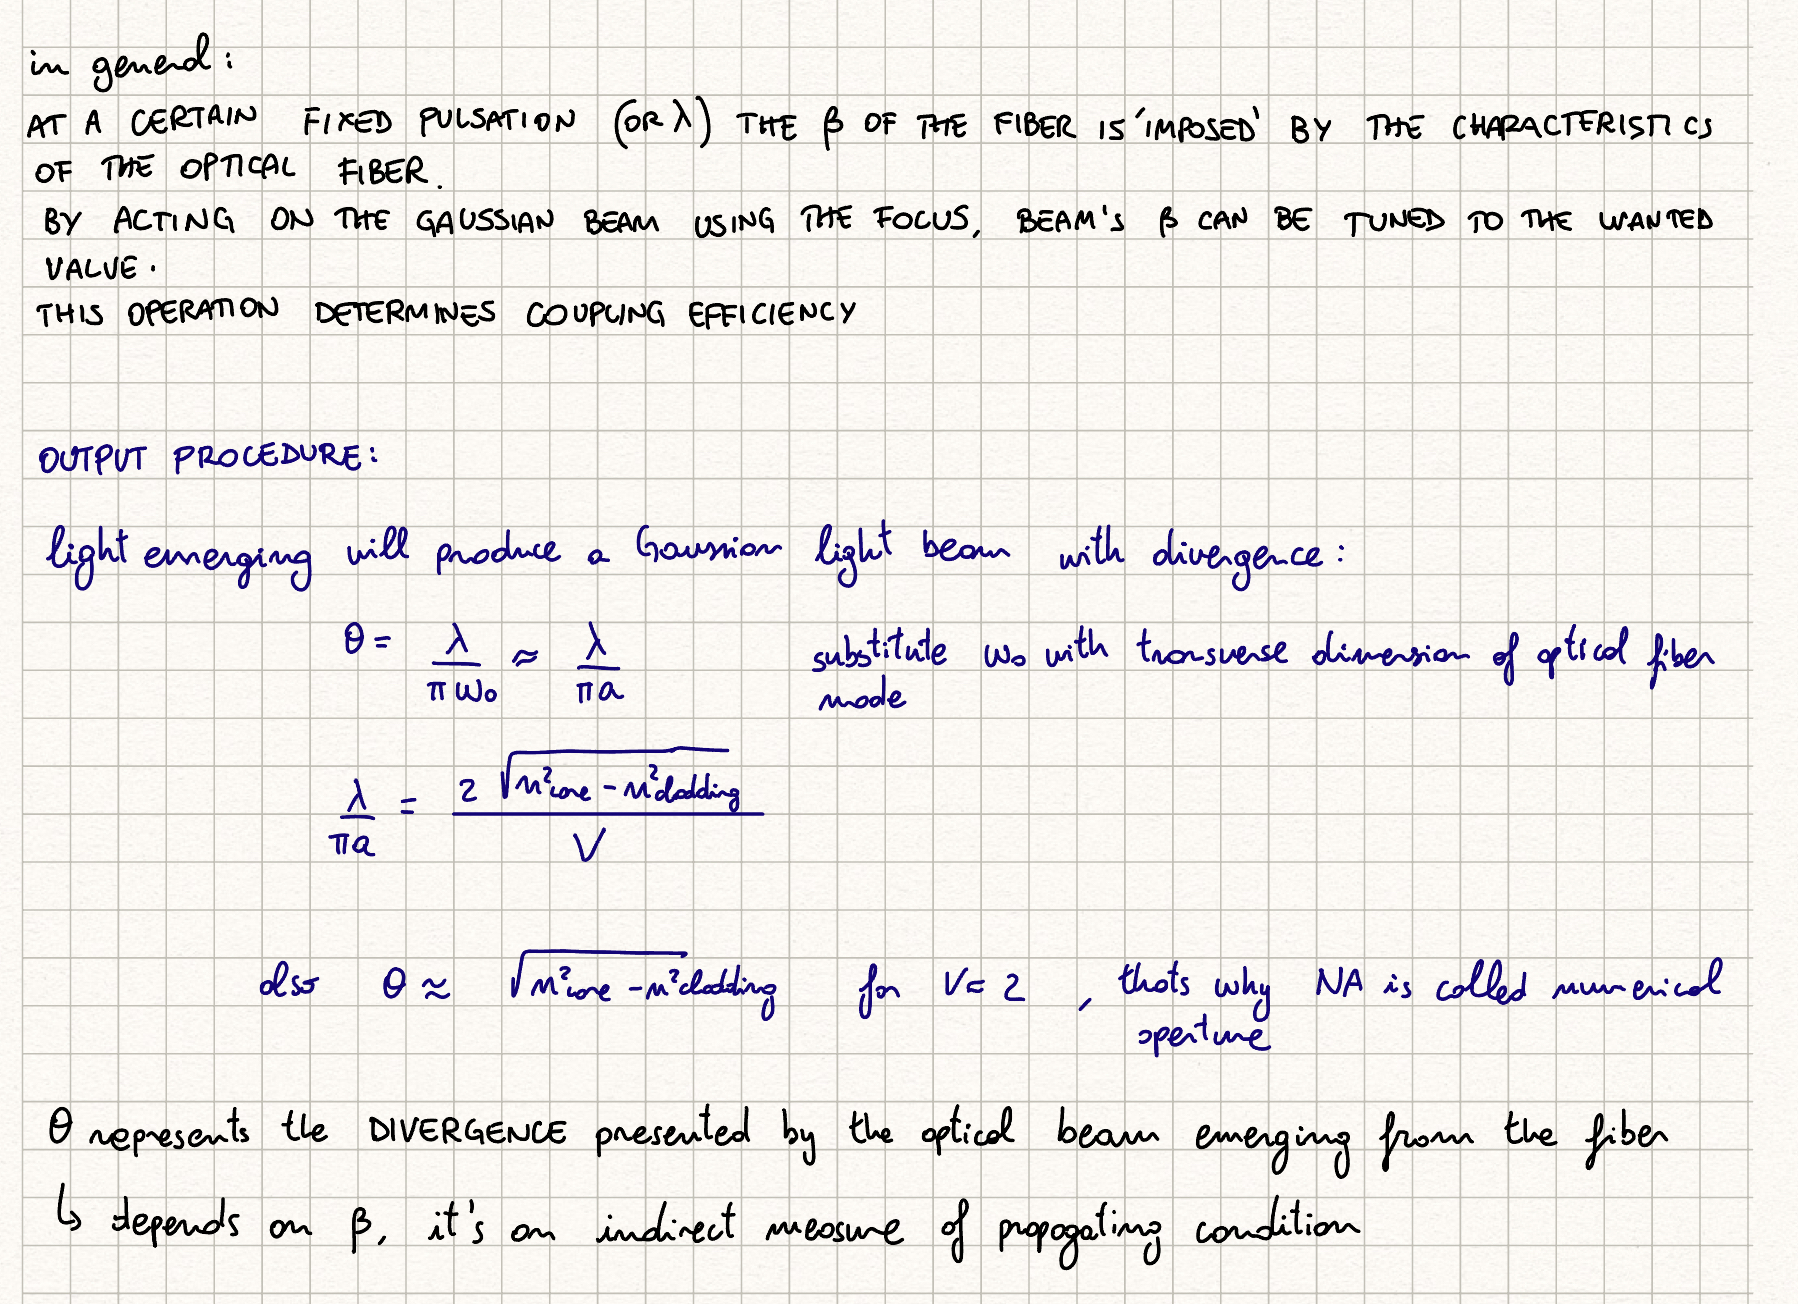 in general:
AT A CERTAIN FIXED PULSATION (OR λ) THE β OF THE FIBER IS 'IMPOSED' BY THE CHARACTERISTICS
OF THE OPTICAL FIBER.
BY ACTING ON THE GAUSSIAN BEAM USING THE FOCUS, BEAM'S β CAN BE TUNED TO THE WANTED
VALUE.
THIS OPERATION DETERMINES COUPLING EFFICIENCY
OUTPUT PROCEDURE:
light emerging will produce a Gaussian light beam with divergence:
θ = λ / (π w₀) ≈ λ / (π a) substitute w₀ with transverse dimension of optical fiber
mode
λ / (π a) = 2 √(n²core - n²cladding) / V
also θ ≈ √(n²core - n²cladding) for V = 2, thats why NA is called numerical
aperture
θ represents the DIVERGENCE presented by the optical beam emerging from the fiber
↳ depends on β, it's an indirect measure of propagating condition